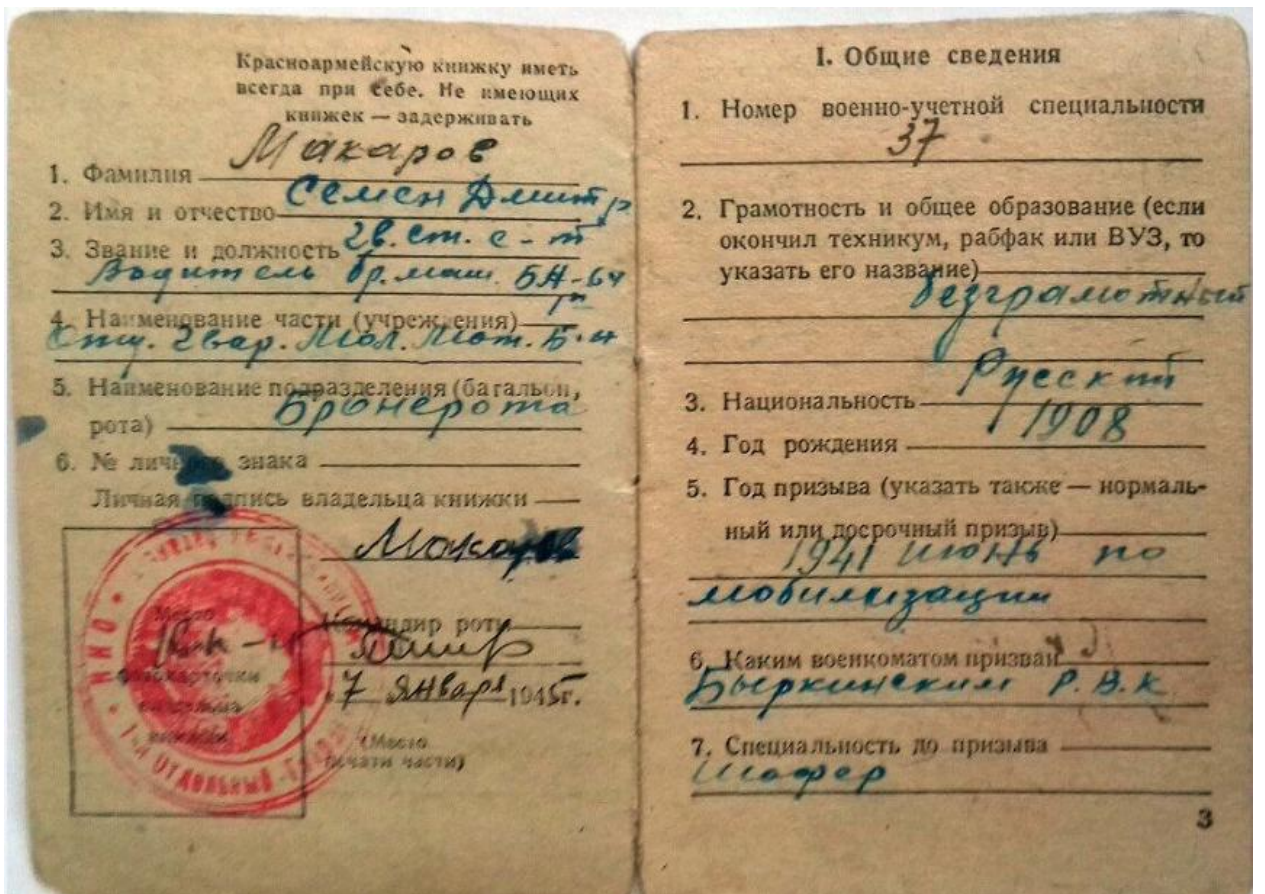 Красноармейскую книжку иметь
всегда при себе. Не имеющих
книжек — задерживать
Макаров
1. Фамилия
Семен Дмитр
2. Имя и отчество
гв. ст. с-т
3. Звание и должность
Водитель бр. маш. БА-64
4. Наименование части (учреждения)
Отд. Гвар. Мот. Б-н
5. Наименование подразделения (батальон,
Бронерота
рота)
6. № личного знака
Личная подпись владельца книжки
Макаров
Место
Командир роты
фотокарточки
владельца
книжки
7 Января 1945г.
(Место
печати части)
1-й ОТДЕЛЬНЫЙ
I. Общие сведения
1. Номер военно-учетной специальности
37
2. Грамотность и общее образование (если
окончил техникум, рабфак или ВУЗ, то
указать его название)
безграмотный
Русский
3. Национальность
1908
4. Год рождения
5. Год призыва (указать также — нормаль-
ный или досрочный призыв)
1941 июнь по
мобилизации
6. Каким военкоматом призван
Быркинским Р.В.К
7. Специальность до призыва
Шофер
3